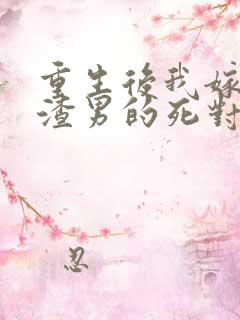 重生後我嫁
渣男的死對
忍